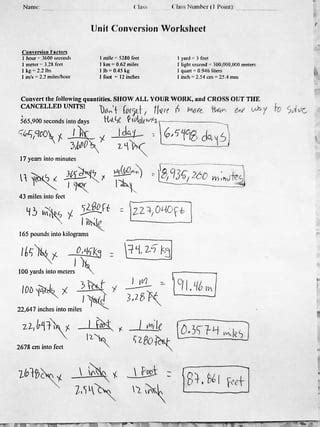 Name: Class Class Number (1 Point):
Unit Conversion Worksheet
Conversion Factors
1 hour = 3600 seconds 1 mile = 5280 feet 1 yard = 3 feet
1 meter = 3.28 feet 1 km = 0.62 miles 1 light second = 300,000,000 meters
1 kg = 2.2 lbs 1 lb = 0.45 kg 1 quart = 0.946 liters
1 m/s = 2.2 miles/hour 1 foot = 12 inches 1 inch = 2.54 cm = 25.4 mm
Convert the following quantities. SHOW ALL YOUR WORK, and CROSS OUT THE
CANCELLED UNITS! Don't forget, there is more than one way to solve
these problems
565,900 seconds into days
565,900 s x 1 hr / 3,600 s x 1 day / 24 hr = 6.5498 days
17 years into minutes
17 years x 365 days / 1 year x / 1 day = 8,935,200 minutes
43 miles into feet
43 miles x 5280 ft / 1 mile = 227,040 ft
165 pounds into kilograms
165 lbs x 0.45 kg / 1 lb = 74.25 kg
100 yards into meters
100 yards x 3 feet / 1 yard x 1 m / 3.28 ft = 91.46 m
22,647 inches into miles
22,647 in x 1 foot / 12 in x 1 mile / 5280 feet = 0.3574 miles
2678 cm into feet
2678 cm x 1 inch / 2.54 cm x 1 foot / 12 inch = 87.861 feet